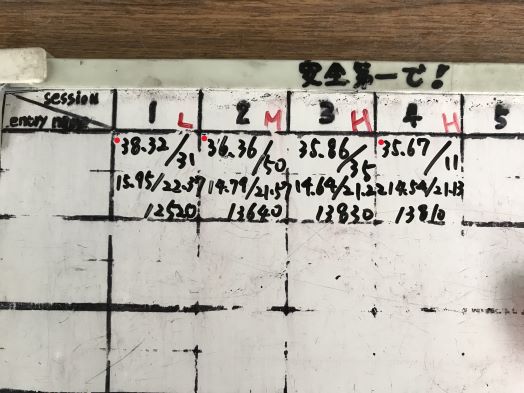 安全第一で!
session
entry name
1 L 2 M 3 H 4 H 5
38.32/31 36.36/50 35.86/35 35.67/11
15.95/22.37 14.79/21.57 14.64/21.22 14.54/21.13
12520 13640 13830 13810